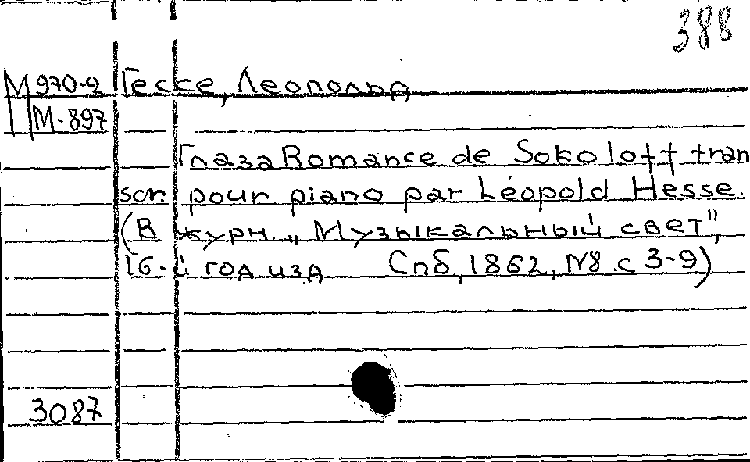 388
М970-2 Гессе, Леопольд
М-897
Глаза Romance de Sokoloff tran
scr. pour piano par Léopold Hesse.
(В журн. „Музыкальный свет",
16-й год изд Спб, 1862, N8 с 3-9)
3087